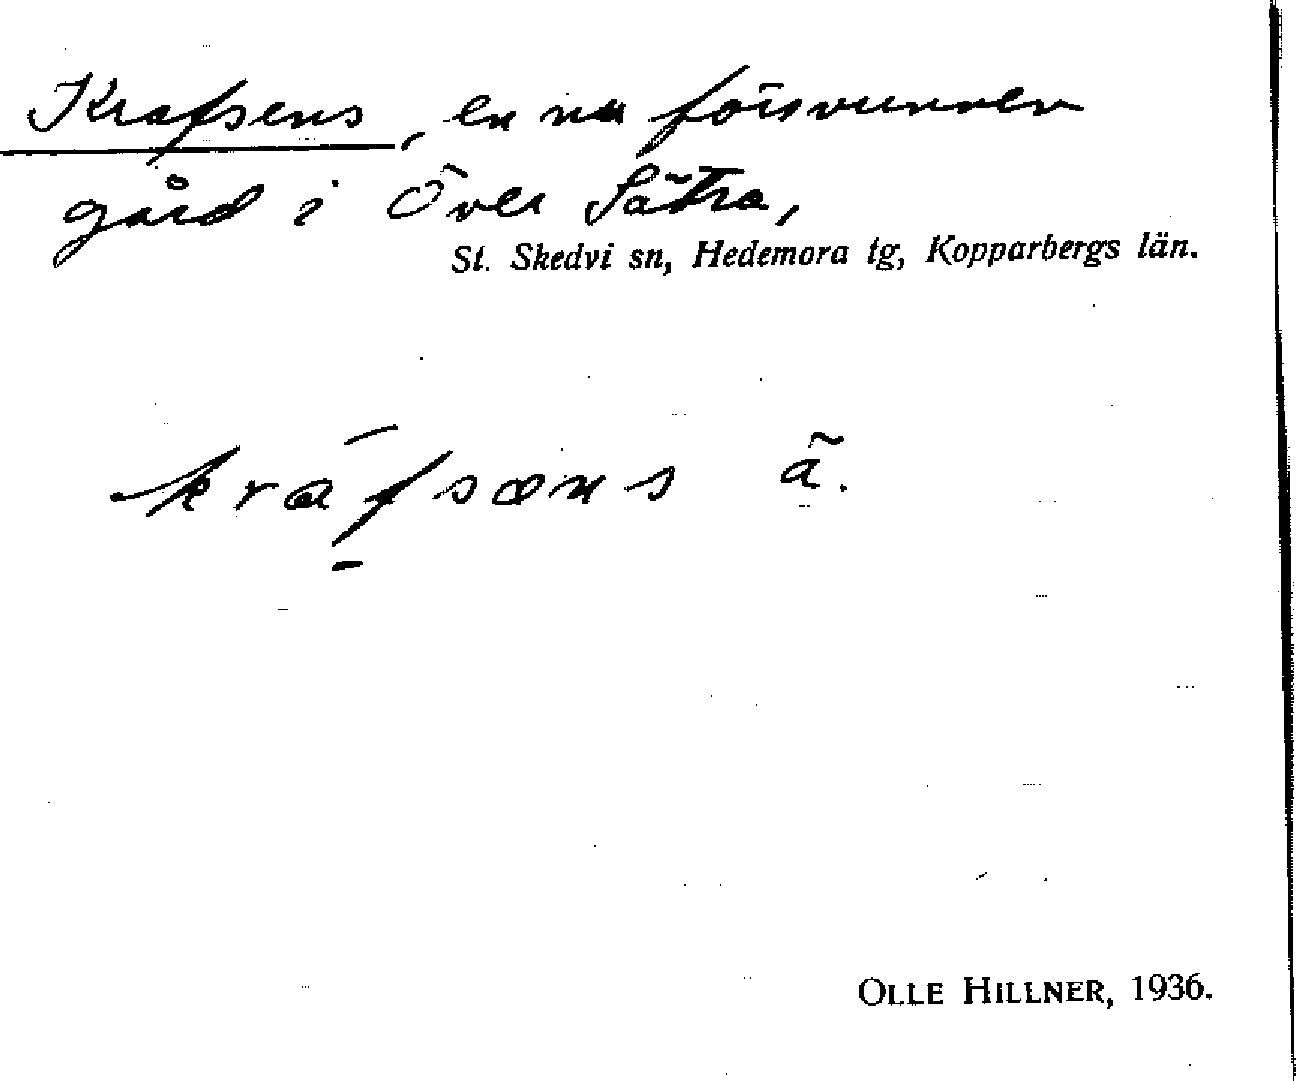 Krafsens, en nu försvunnen
gård i Över Sätra,
St. Skedvi sn, Hedemora tg, Kopparbergs län.
kráf̱sɷns ã.
OLLE HILLNER, 1936.